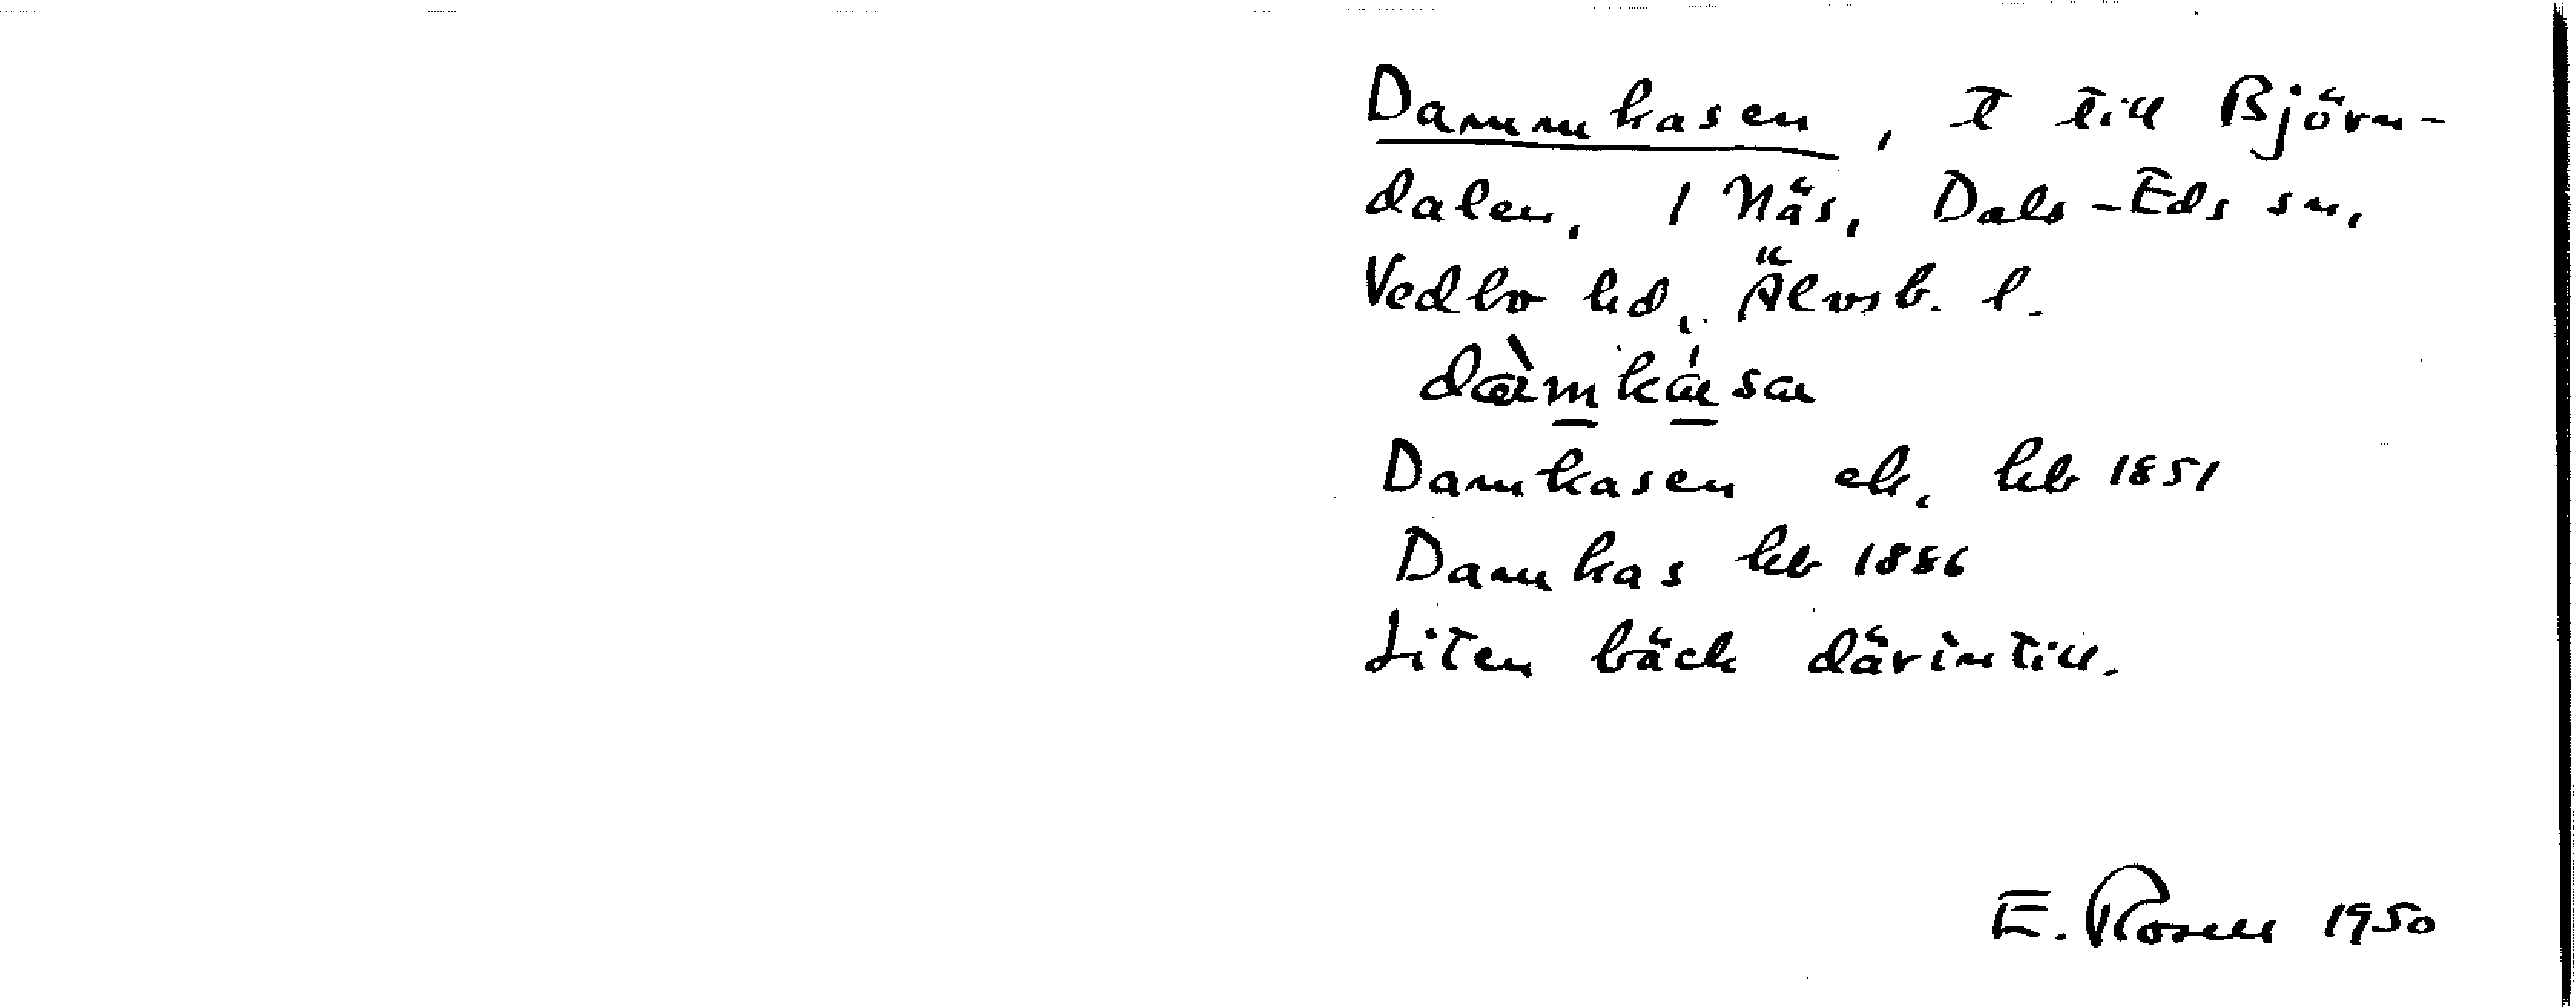 Dammkasen, t till Björn-
dalen, 1 Näs, Dals-Eds sn,
Vedbo hd, Älvsb. l.
Damkasen ek, hb 1851
Damkas hb 1886
Liten bäck därintill.
E. Rosell 1950